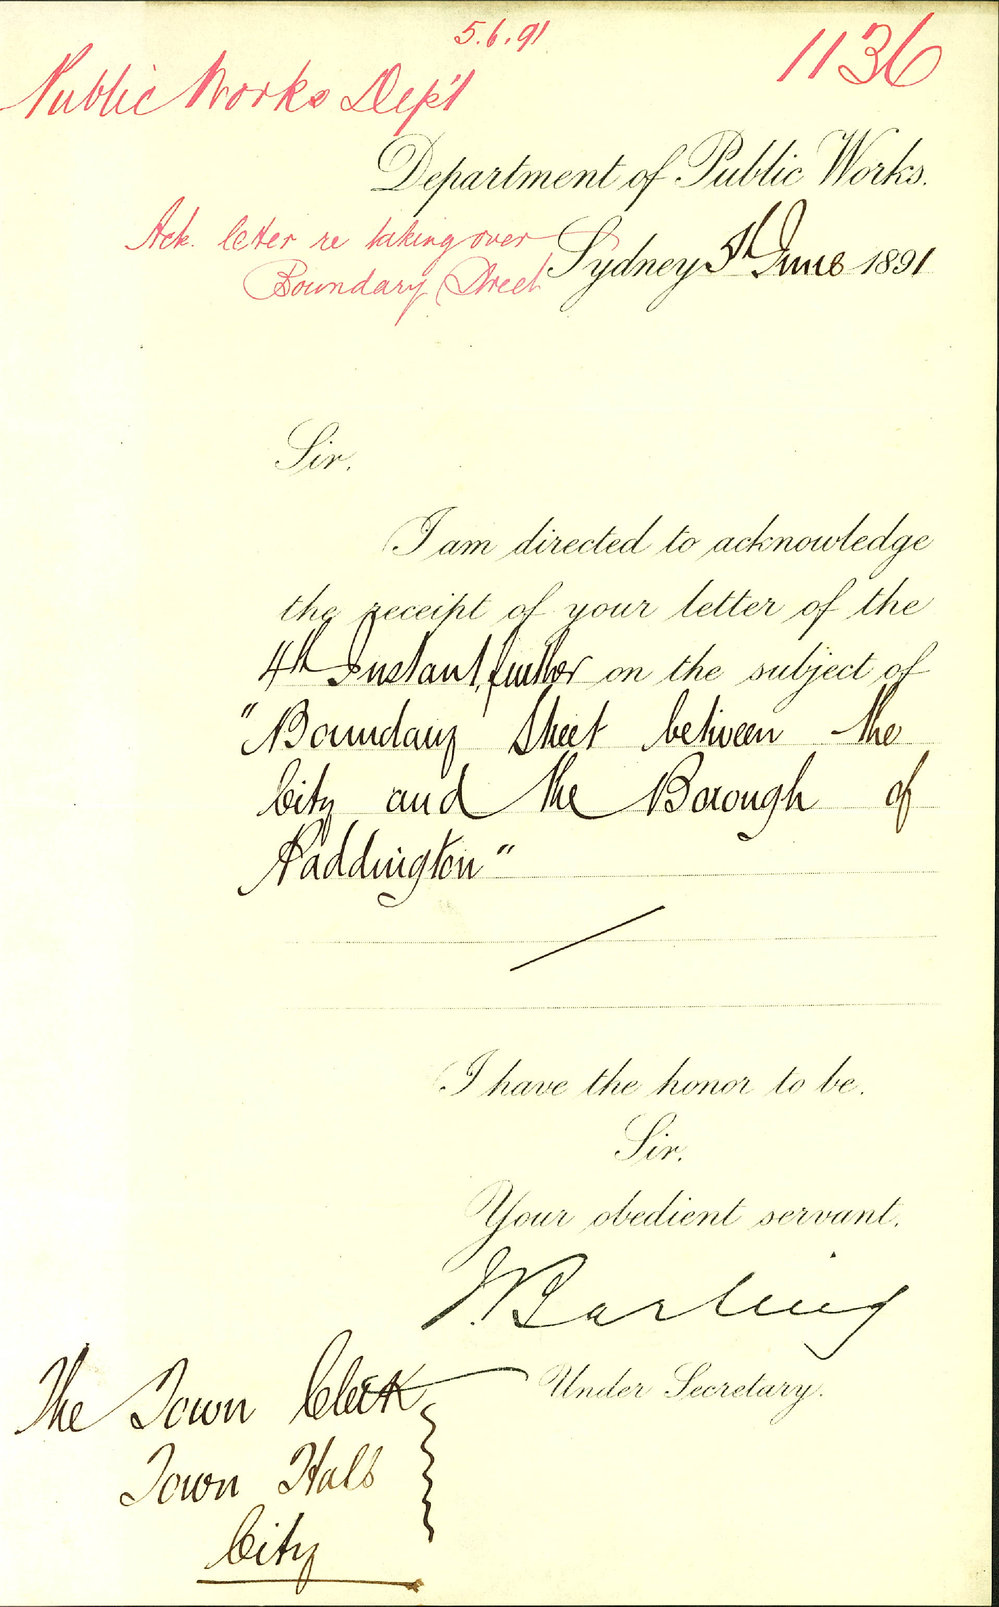 5.6.91
1136
Public Works Dep't
Department of Public Works.
Ack. letter re taking over
Boundary Street
Sydney 5th June 1891
Sir.
I am directed to acknowledge
the receipt of your letter of the
4th Instant, further on the subject of
"Boundary Street between the
City and the Borough of
Paddington"
I have the honor to be.
Sir.
Your obedient servant.
J. Barling
Under Secretary.
The Town Clerk
Town Hall
City